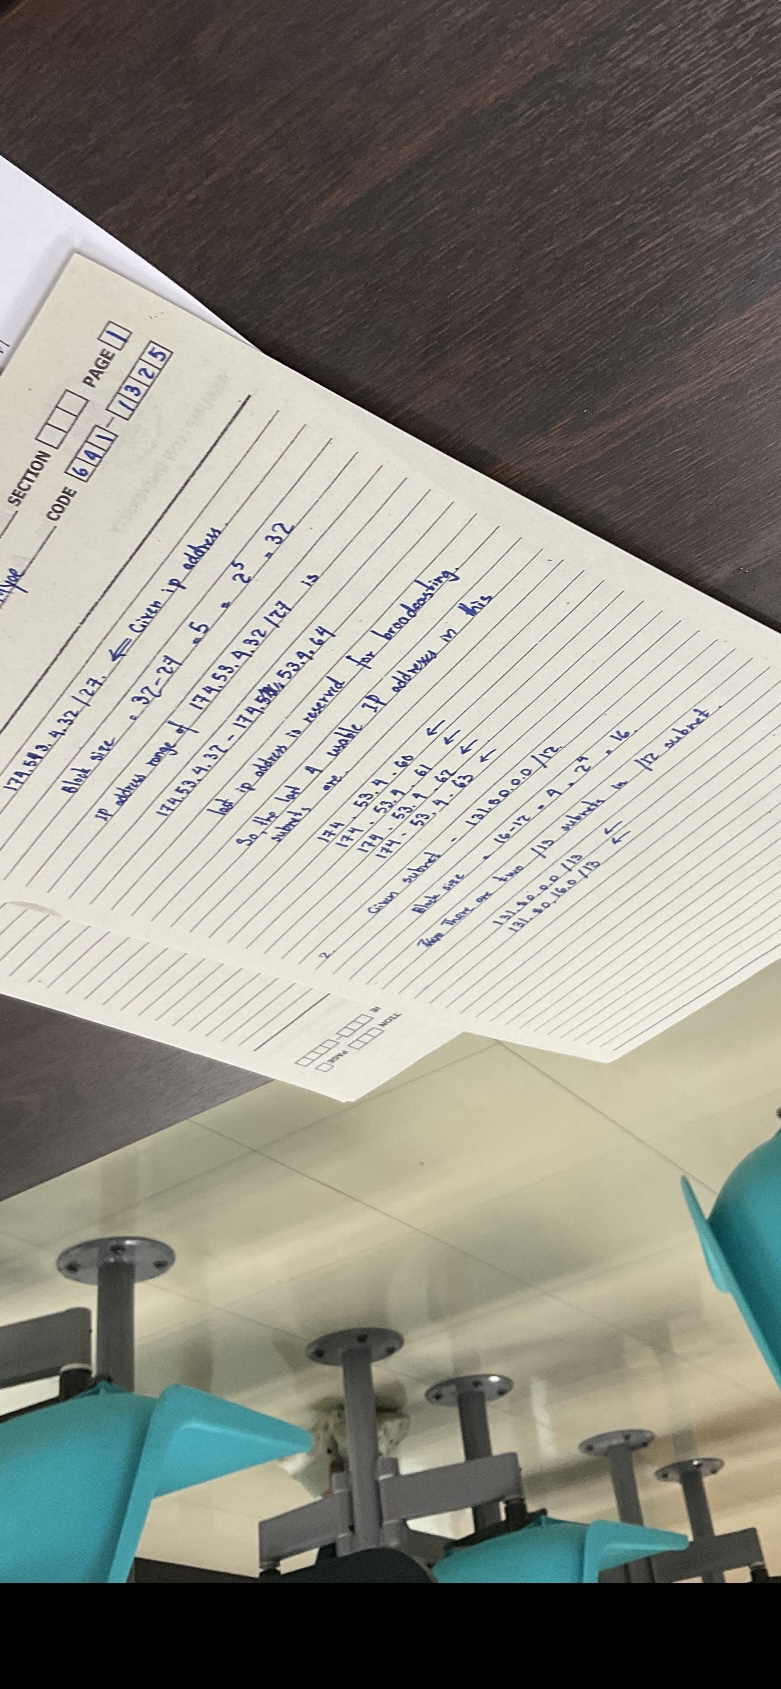 SECTION PAGE 1
CODE 641-1325
174.53.4.32/27. ← Given ip address
Block size = 32-27 = 5 = 2⁵ = 32
IP address range of 174.53.4.32/27 is
174.53.4.32 - 174.53.4.64
last ip address is reserved for broadcasting.
So, the last 4 usable IP addresses in this
subnets are
174.53.4.60 ←
174.53.4.61 ←
174.53.4.62 ←
174.53.4.63 ←
2. Given subnet - 131.80.0.0/12
Block size = 16-12 = 4 = 2⁴ = 16
There are two /13 subnets in /12 subnet.
131.80.0.0/13 ←
131.80.16.0/13 ←
TION
PAGE